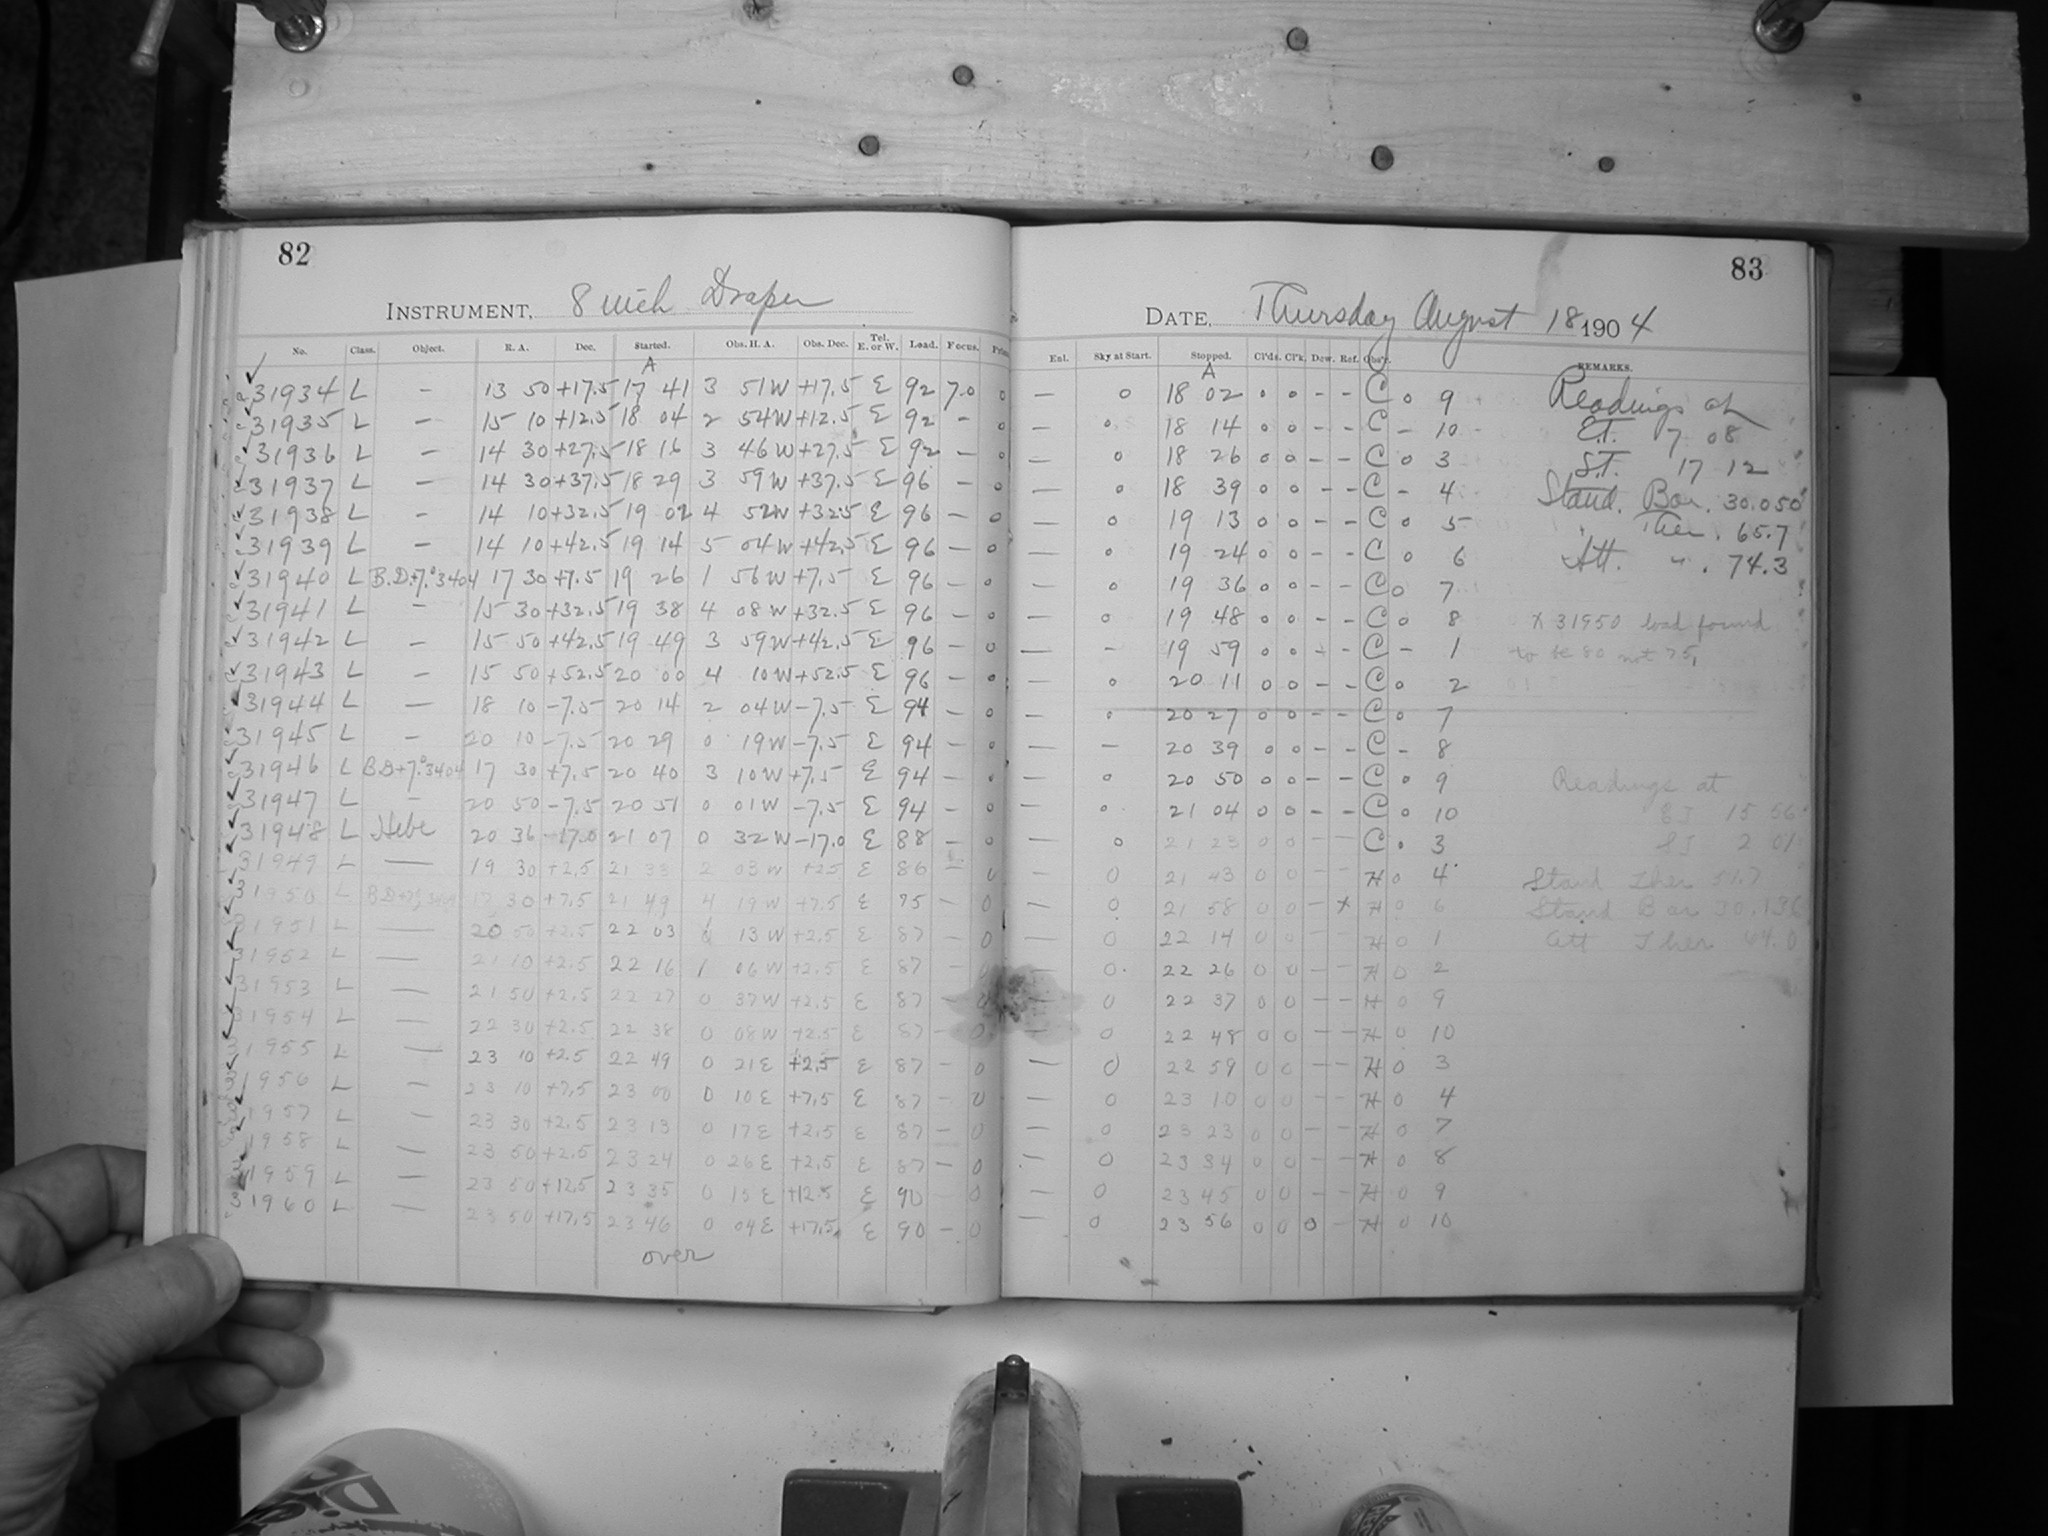 82
INSTRUMENT, 8 inch Draper
No. Class. Object. R. A. Dec. Started. Obs. H. A. Obs. Dec. Tel. E. or W. Load. Focus.
A
31934 L — 13 50 +17.5 17 41 3 51 W +17.5 E 92 7.0 0
31935 L — 15 10 +12.5 18 04 2 54 W +12.5 E 92 - 0
31936 L — 14 30 +27.5 18 16 3 46 W +27.5 E 92 - 0
31937 L — 14 30 +37.5 18 29 3 59 W +37.5 E 96 - 0
31938 L — 14 10 +32.5 19 02 4 52 W +32.5 E 96 - 0
31939 L — 14 10 +42.5 19 14 5 04 W +42.5 E 96 - 0
31940 L B.D.+7.°3404 17 30 +7.5 19 26 1 56 W +7.5 E 96 - 0
31941 L — 15 30 +32.5 19 38 4 08 W +32.5 E 96 - 0
31942 L — 15 50 +42.5 19 49 3 59 W +42.5 E 96 - 0
31943 L — 15 50 +52.5 20 00 4 10 W +52.5 E 96 - 0
31944 L — 18 10 -7.5 20 14 2 04 W -7.5 E 94 - 0
31945 L — 20 10 -7.5 20 29 0 19 W -7.5 E 94 - 0
31946 L B.D.+7.°3404 17 30 +7.5 20 40 3 10 W +7.5 E 94 - 0
31947 L — 20 50 -7.5 20 51 0 01 W -7.5 E 94 - 0
31948 L Hebe 20 36 -17.0 21 07 0 32 W -17.0 E 88 - 0
31949 L — 19 30 +2.5 21 33 2 03 W +2.5 E 86 - 0
31950 L 17 30 +7.5 21 49 4 19 W +7.5 E 75 - 0
31951 L — 20 50 +2.5 22 03 1 13 W +2.5 E 87 - 0
31952 L — 21 10 +2.5 22 16 1 06 W +2.5 E 87 - 0
31953 L — 21 50 +2.5 22 27 0 37 W +2.5 E 87 - 0
31954 L — 22 30 +2.5 22 38 0 08 W +2.5 E 87 - 0
31955 L — 23 10 +2.5 22 49 0 21 E +2.5 E 87 - 0
31956 L — 23 10 +7.5 23 00 0 10 E +7.5 E 87 - 0
1957 L — 23 30 +2.5 23 13 0 17 E +2.5 E 87 - 0
1958 L — 23 50 +2.5 23 24 0 26 E +2.5 E 87 - 0
31959 L — 23 50 +12.5 23 35 0 15 E +12.5 E 90 0
31960 L — 23 50 +17.5 23 46 0 04 E +17.5 E 90 - 0
over
83
DATE, Thursday August 18 1904
Ent. Sky at Start. Stopped. Cl'ds. Cl'k. Dew. Ref. Obs'r. REMARKS.
A
— 0 18 02 0 0 - - C 0 9 Readings at
— 0 18 14 0 0 - - C - 10 E.T. 7 08
— 0 18 26 0 0 - - C 0 3 S.T. 17 12
— 0 18 39 0 0 - - C - 4 Stand. Bar. 30.050
— 0 19 13 0 0 - - C 0 5 Ther. 65.7
— 0 19 24 0 0 - - C 0 6 Att. " . 74.3
— 0 19 36 0 0 - - C 0 7
— 0 19 48 0 0 - - C 0 8 x 31950 load found
— - 19 59 0 0 - - C - 1 to be 80 not 75,
— 0 20 11 0 0 - - C 0 2
— 0 20 27 0 0 - - C 0 7
— - 20 39 0 0 - - C - 8
— 0 20 50 0 0 - - C 0 9 Readings at
— 0 21 04 0 0 - - C 0 10 15 56
— 0 21 23 0 0 - - C 0 3 2 01
— 0 21 43 0 0 - - H 0 4 Stand Ther 51.7
— 0 21 58 0 0 - x H 0 6 Stand Bar 30.136
— 0 22 14 0 0 - - H 0 1 Att Ther 64.0
— 0 22 26 0 0 - - H 0 2
— 0 22 37 0 0 - - H 0 9
— 0 22 48 0 0 - - H 0 10
— 0 22 59 0 0 - - H 0 3
— 0 23 10 0 0 - - H 0 4
— 0 23 23 0 0 - - H 0 7
— 0 23 34 0 0 - - H 0 8
— 0 23 45 0 0 - - H 0 9
— 0 23 56 0 0 0 - H 0 10